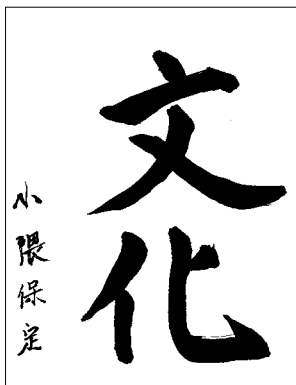 文化
小隈保定